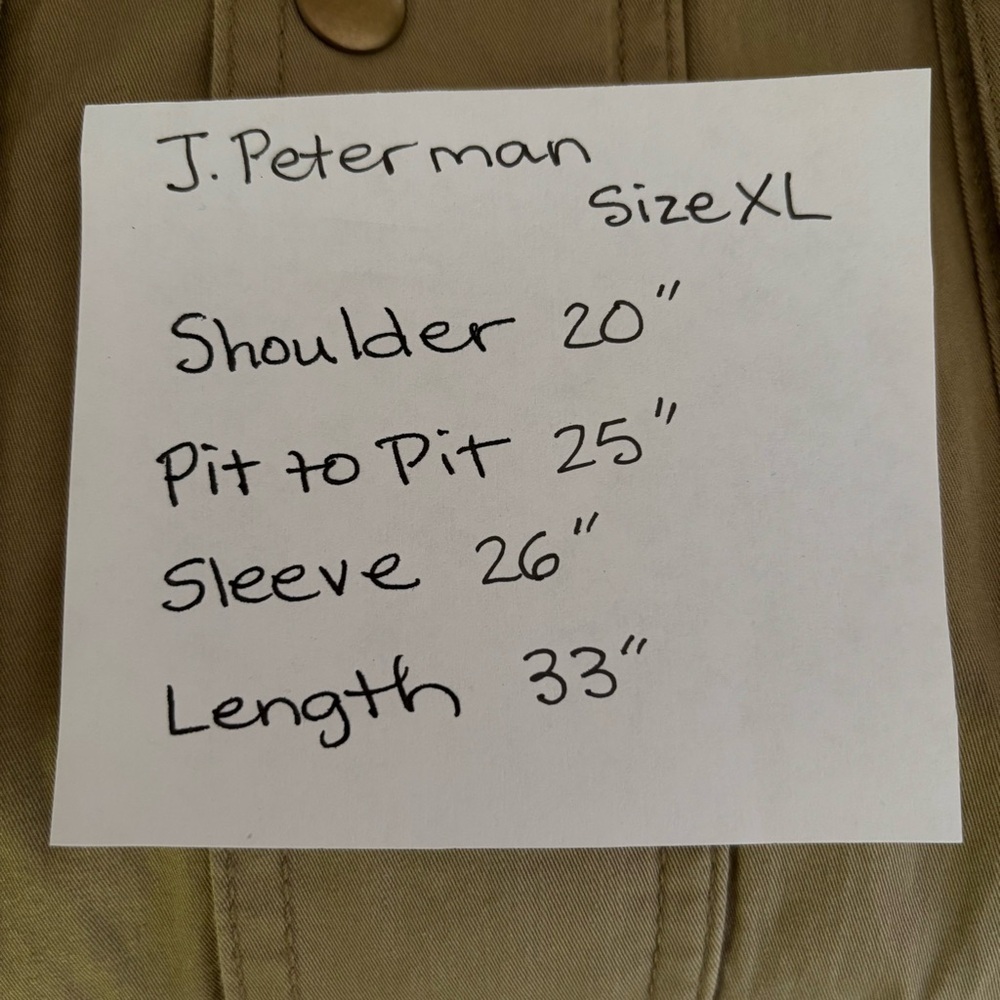 J. Peterman
Size XL
Shoulder 20"
Pit to Pit 25"
Sleeve 26"
Length 33"